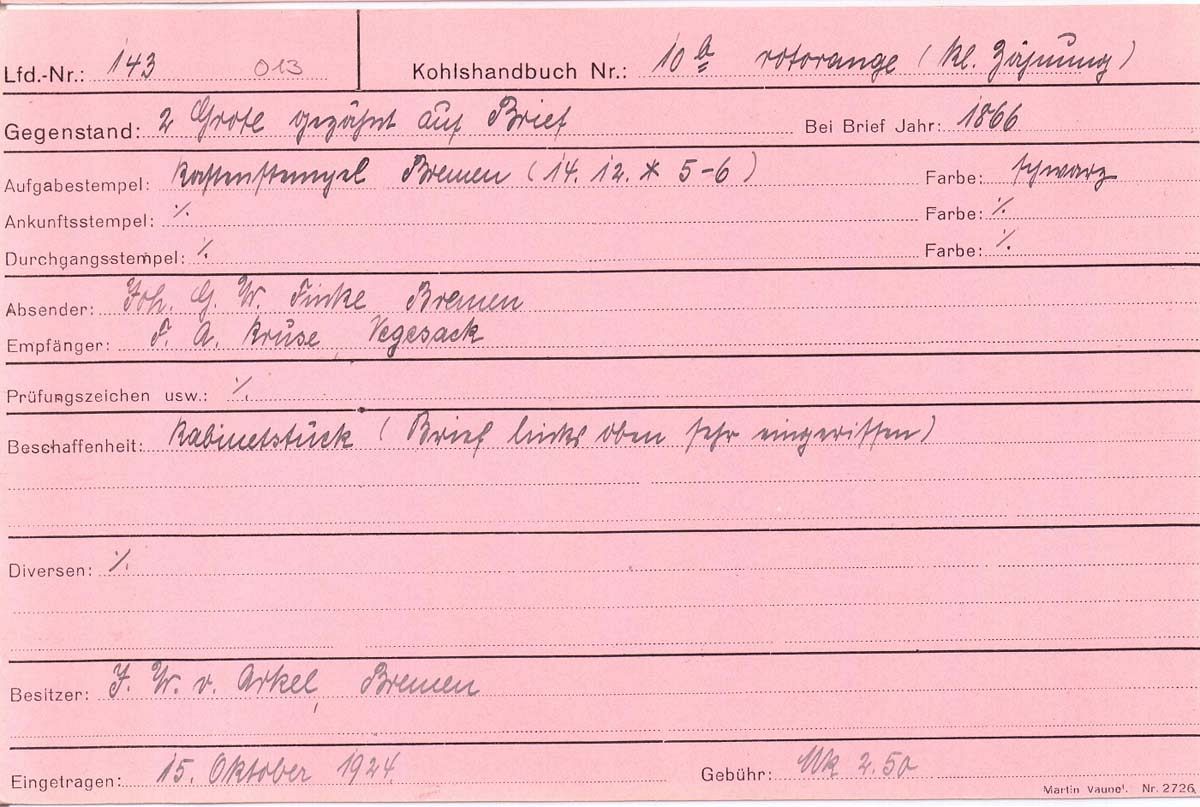 Lfd.-Nr.: 143 013 Kohlshandbuch Nr.: 10 b rotorange (kl. Zähnung)
Gegenstand: 2 Grote gezähnt auf Brief Bei Brief Jahr: 1866
Aufgabestempel: Kastenstempel Bremen (14. 12. * 5-6) Farbe: schwarz
Ankunftsstempel: ⁒ Farbe: ⁒
Durchgangsstempel: ⁒ Farbe: ⁒
Absender: Joh. G. W. Finke Bremen
Empfänger: F. A. Kruse, Vegesack
Prüfungszeichen usw.: ⁒
Beschaffenheit: Kabinetstück (Brief links oben sehr eingerissen)
Diversen: ⁒
Besitzer: J. W. v. Arkel, Bremen
Eingetragen: 15. Oktober 1924. Gebühr: Mk 2.50
Martin Nr. 2726